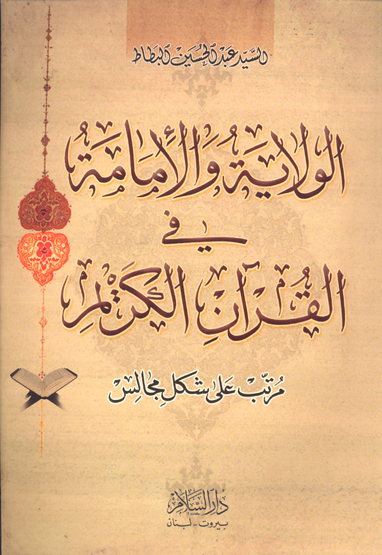 السيد عبد الحسين البطاط
الولاية والإمامة
في
القرآن الكريم
مرتب على شكل مجالس
دار السلام
بيروت - لبنان